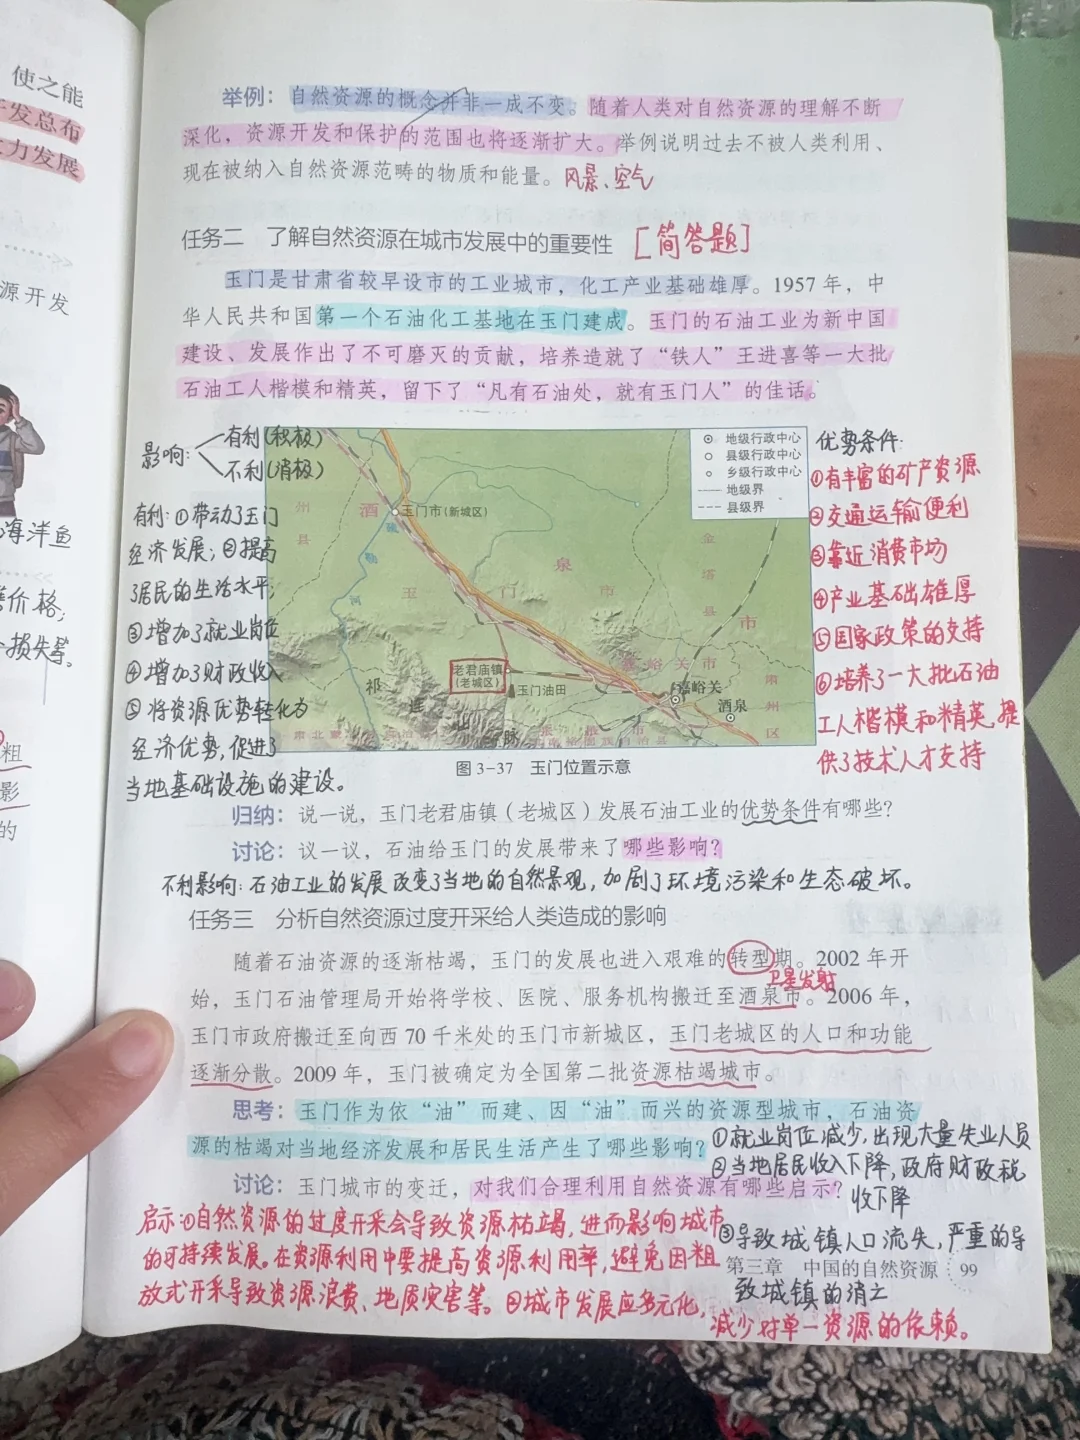 使之能
发总布
力发展
源开发
海洋鱼
价格；
损失等。
粗
影
的
举例：自然资源的概念并非一成不变。随着人类对自然资源的理解不断
深化，资源开发和保护的范围也将逐渐扩大。举例说明过去不被人类利用、
现在被纳入自然资源范畴的物质和能量。风景、空气
任务二 了解自然资源在城市发展中的重要性 [简答题]
玉门是甘肃省较早设市的工业城市，化工产业基础雄厚。1957 年，中
华人民共和国第一个石油化工基地在玉门建成。玉门的石油工业为新中国
建设、发展作出了不可磨灭的贡献，培养造就了“铁人”王进喜等一大批
石油工人楷模和精英，留下了“凡有石油处，就有玉门人”的佳话。
影响：
有利（积极）
不利（消极）
有利：①带动了玉门
经济发展；②提高
了居民的生活水平；
③增加了就业岗位
④增加了财政收入
⑤将资源优势转化为
经济优势，促进了
当地基础设施的建设。
地级行政中心
县级行政中心
乡级行政中心
地级界
县级界
州
县
酒
玉门市（新城区）
疏
勒
河
泉
玉
门
市
金
塔
县
市
嘉峪关市
老君庙镇
（老城区）
玉门油田
嘉峪关
酒泉
肃
州
区
祁
连
脉
肃北蒙
自治县
图 3-37 玉门位置示意
优势条件：
①有丰富的矿产资源
②交通运输便利
③靠近消费市场
④产业基础雄厚
⑤国家政策的支持
⑥培养了一大批石油
工人楷模和精英，提
供了技术人才支持
归纳：说一说，玉门老君庙镇（老城区）发展石油工业的优势条件有哪些？
讨论：议一议，石油给玉门的发展带来了哪些影响？
不利影响：石油工业的发展改变了当地的自然景观，加剧了环境污染和生态破坏。
任务三 分析自然资源过度开采给人类造成的影响
随着石油资源的逐渐枯竭，玉门的发展也进入艰难的转型期。2002 年开
卫星发射
始，玉门石油管理局开始将学校、医院、服务机构搬迁至酒泉市。2006 年，
玉门市政府搬迁至向西 70 千米处的玉门市新城区，玉门老城区的人口和功能
逐渐分散。2009 年，玉门被确定为全国第二批资源枯竭城市。
思考：玉门作为依“油”而建、因“油”而兴的资源型城市，石油资
源的枯竭对当地经济发展和居民生活产生了哪些影响？
①就业岗位减少，出现大量失业人员
②当地居民收入下降，政府财政税
收下降
③导致城镇人口流失，严重的导
致城镇的消亡
讨论：玉门城市的变迁，对我们合理利用自然资源有哪些启示？
启示：①自然资源的过度开采会导致资源枯竭，进而影响城市
的可持续发展。在资源利用中要提高资源利用率，避免因粗
放式开采导致资源浪费、地质灾害等。②城市发展应多元化，
减少对单一资源的依赖。
第三章 中国的自然资源 99